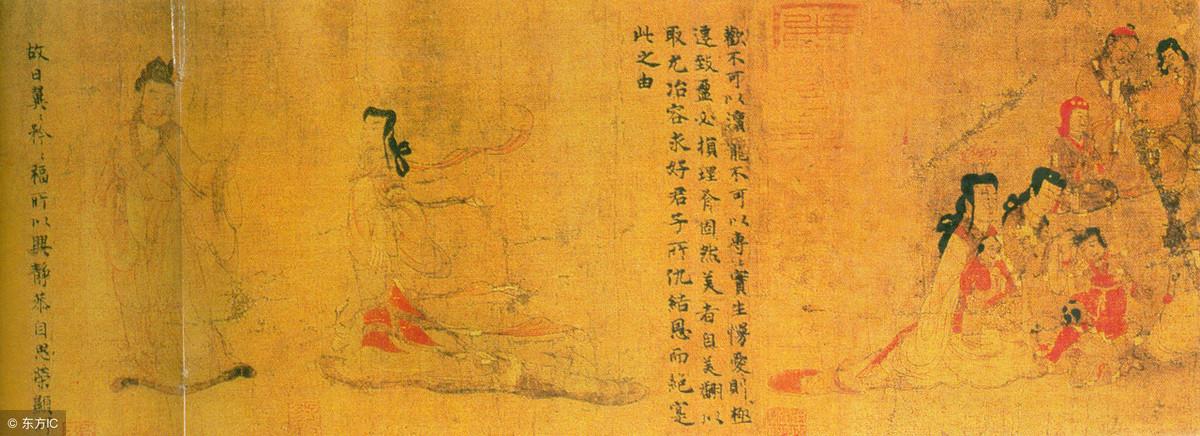 歡不可以瀆寵不可以專〻實生慢愛則極
遷致盈必損理有固然美者自美翩以
取尤冶容求好君子所仇結恩而絕寔
此之由
故曰翼〻矜〻福所以興靜恭自思榮顯
© 东方IC